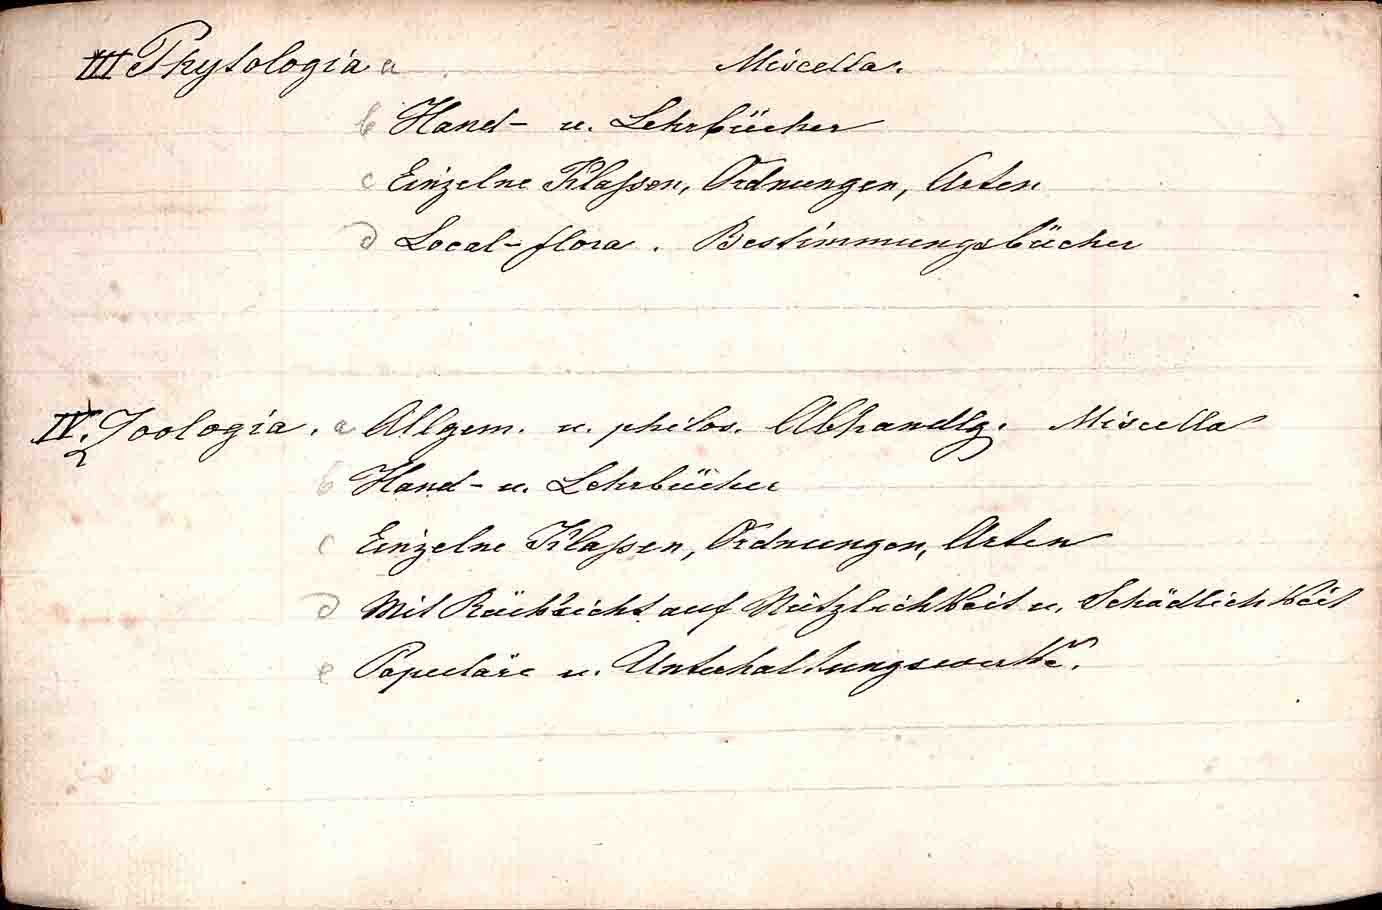 III Phytologia a Miscella.
b Hand- u. Lehrbücher
c Einzelne Klaßen, Ordnungen, Arten
d Local-flora. Bestimmungsbücher
IV. Zoologia. a Allgem. u. philos. Abhandlg. Miscella
b Hand- u. Lehrbücher
c Einzelne Klaßen, Ordnungen, Arten
d Mit Rücksicht auf Nützlichkeit u. Schädlichkeit
e Populäre u. Unterhaltungswerke.